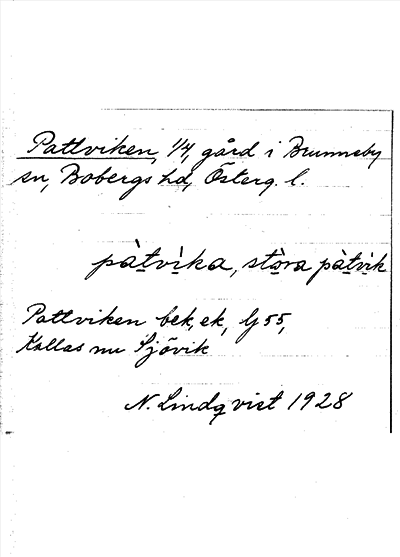 Pattviken, 1/4, gård i Brunneby
sn, Bobergs hd, Österg. l.
pàtvìka, stòra pàtvìk
Pattviken bek, ek, Gj 55,
Kallas nu Sjövik
N. Lindqvist 1928